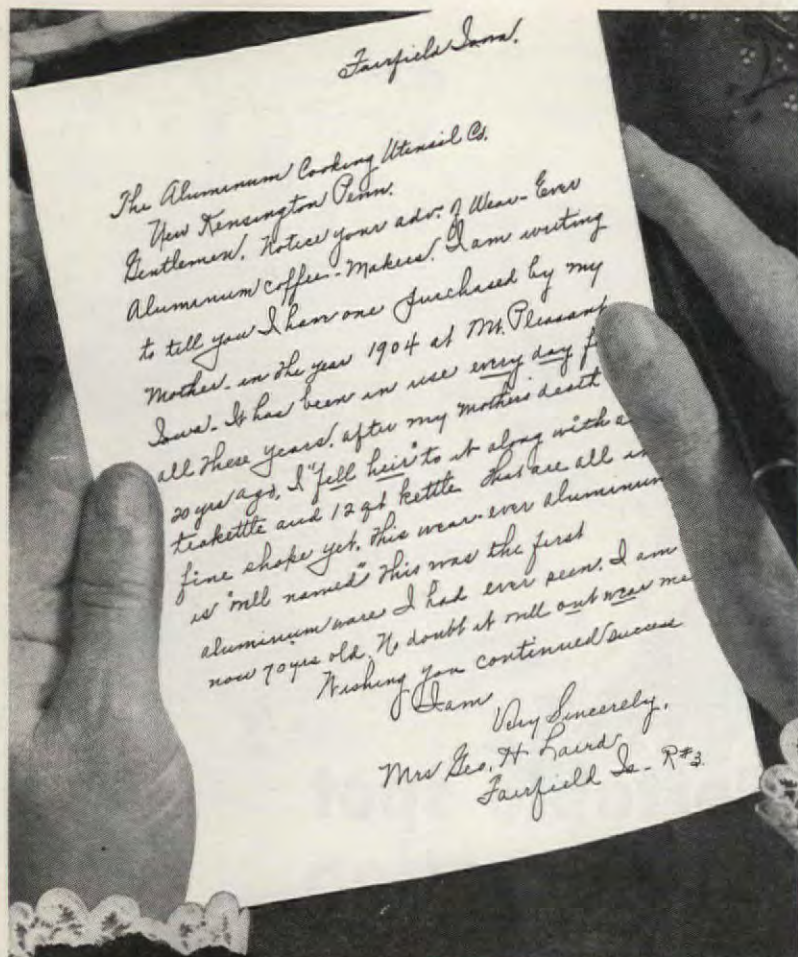 Fairfield Iowa.
The Aluminum Cooking Utensil Co.
New Kensington Penn.
Gentlemen. Notice your adv. of Wear-Ever
Aluminum coffee-Makers. I am writing
to tell you I have one purchased by my
Mother. in the year 1904 at Mt. Pleasant
Iowa. It has been in use every day f
all these years. after my mothers death
20 yrs ago, I "fell heir" to it along with a
teakettle and 12 qt kettle that are all in
fine shape yet. This wear-ever aluminum
is "well named" This was the first
aluminum ware I had ever seen. I am
now 70 yrs old. No doubt it will out wear me
Wishing you continued success
I am
Very Sincerely,
Mrs Geo. H. Laird
Fairfield Ia- R#3